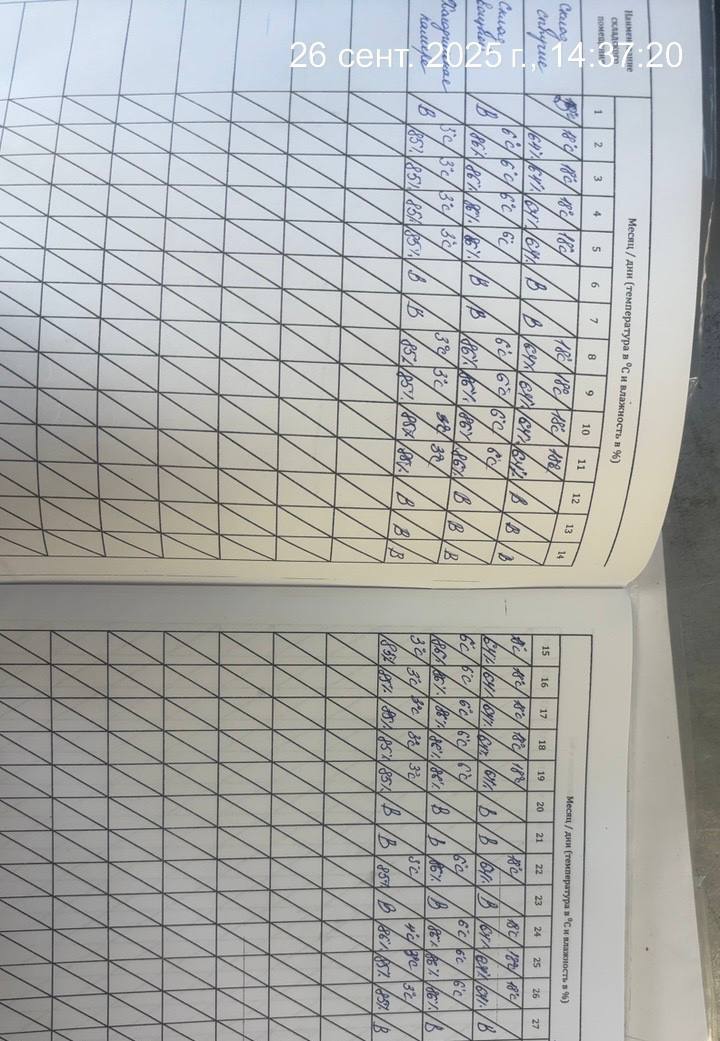 26 сент. 2025 г., 14:37:20
Наименование складского помещения
Месяц / дни (температура в °C и влажность в %)
1 2 3 4 5 6 7 8 9 10 11 12 13 14
Склад 18°C 18°C 18°C 18°C 18°C 18°C 18°C 18°C
64% 64% 64% 64% В В 64% 64% 64% 64% В В В
Склад 6°C 6°C 6°C 6°C 6°C 6°C 6°C 6°C
В 86% 86% 86% 86% В В 86% 86% 86% 86% В В В
Холодная камера 3°C 3°C 3°C 3°C 3°C 3°C 3°C 3°C
В 85% 85% 85% 85% В В 85% 85% 85% 85% В В В
Месяц / дни (температура в °C и влажность в %)
15 16 17 18 19 20 21 22 23 24 25 26 27
18°C 18°C 18°C 18°C 18°C 18°C 18°C 18°C 18°C
64% 64% 64% 64% 64% В В 64% В 64% 64% 64% В
6°C 6°C 6°C 6°C 6°C 6°C 6°C 6°C 6°C
86% 86% 86% 86% 86% В В 86% В 86% 86% 86% В
3°C 3°C 3°C 3°C 3°C 3°C 4°C 3°C 3°C
85% 85% 85% 85% 85% В В 85% В 86% 85% 85% В